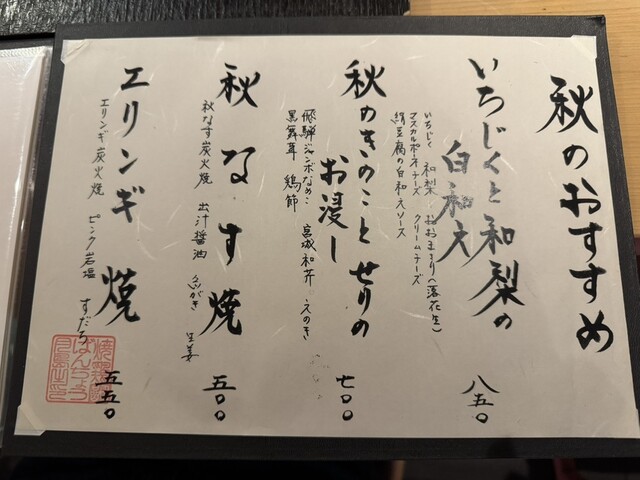 秋のおすすめ
いちじくと和梨の
白和え
いちじく 和梨 おおまさり(落花生)
マスカルポーネチーズ クリームチーズ
絹豆腐の白和えソース
八五〇
秋のきのことせりの
お浸し
飛騨ジャンボなめこ 宮城和芹 えのき
黒舞茸 鶏節
七〇〇
秋なす焼
秋なす炭火焼 出汁醤油 生姜
五〇〇
エリンギ焼
エリンギ炭火焼 ピンク岩塩 すだち
五五〇